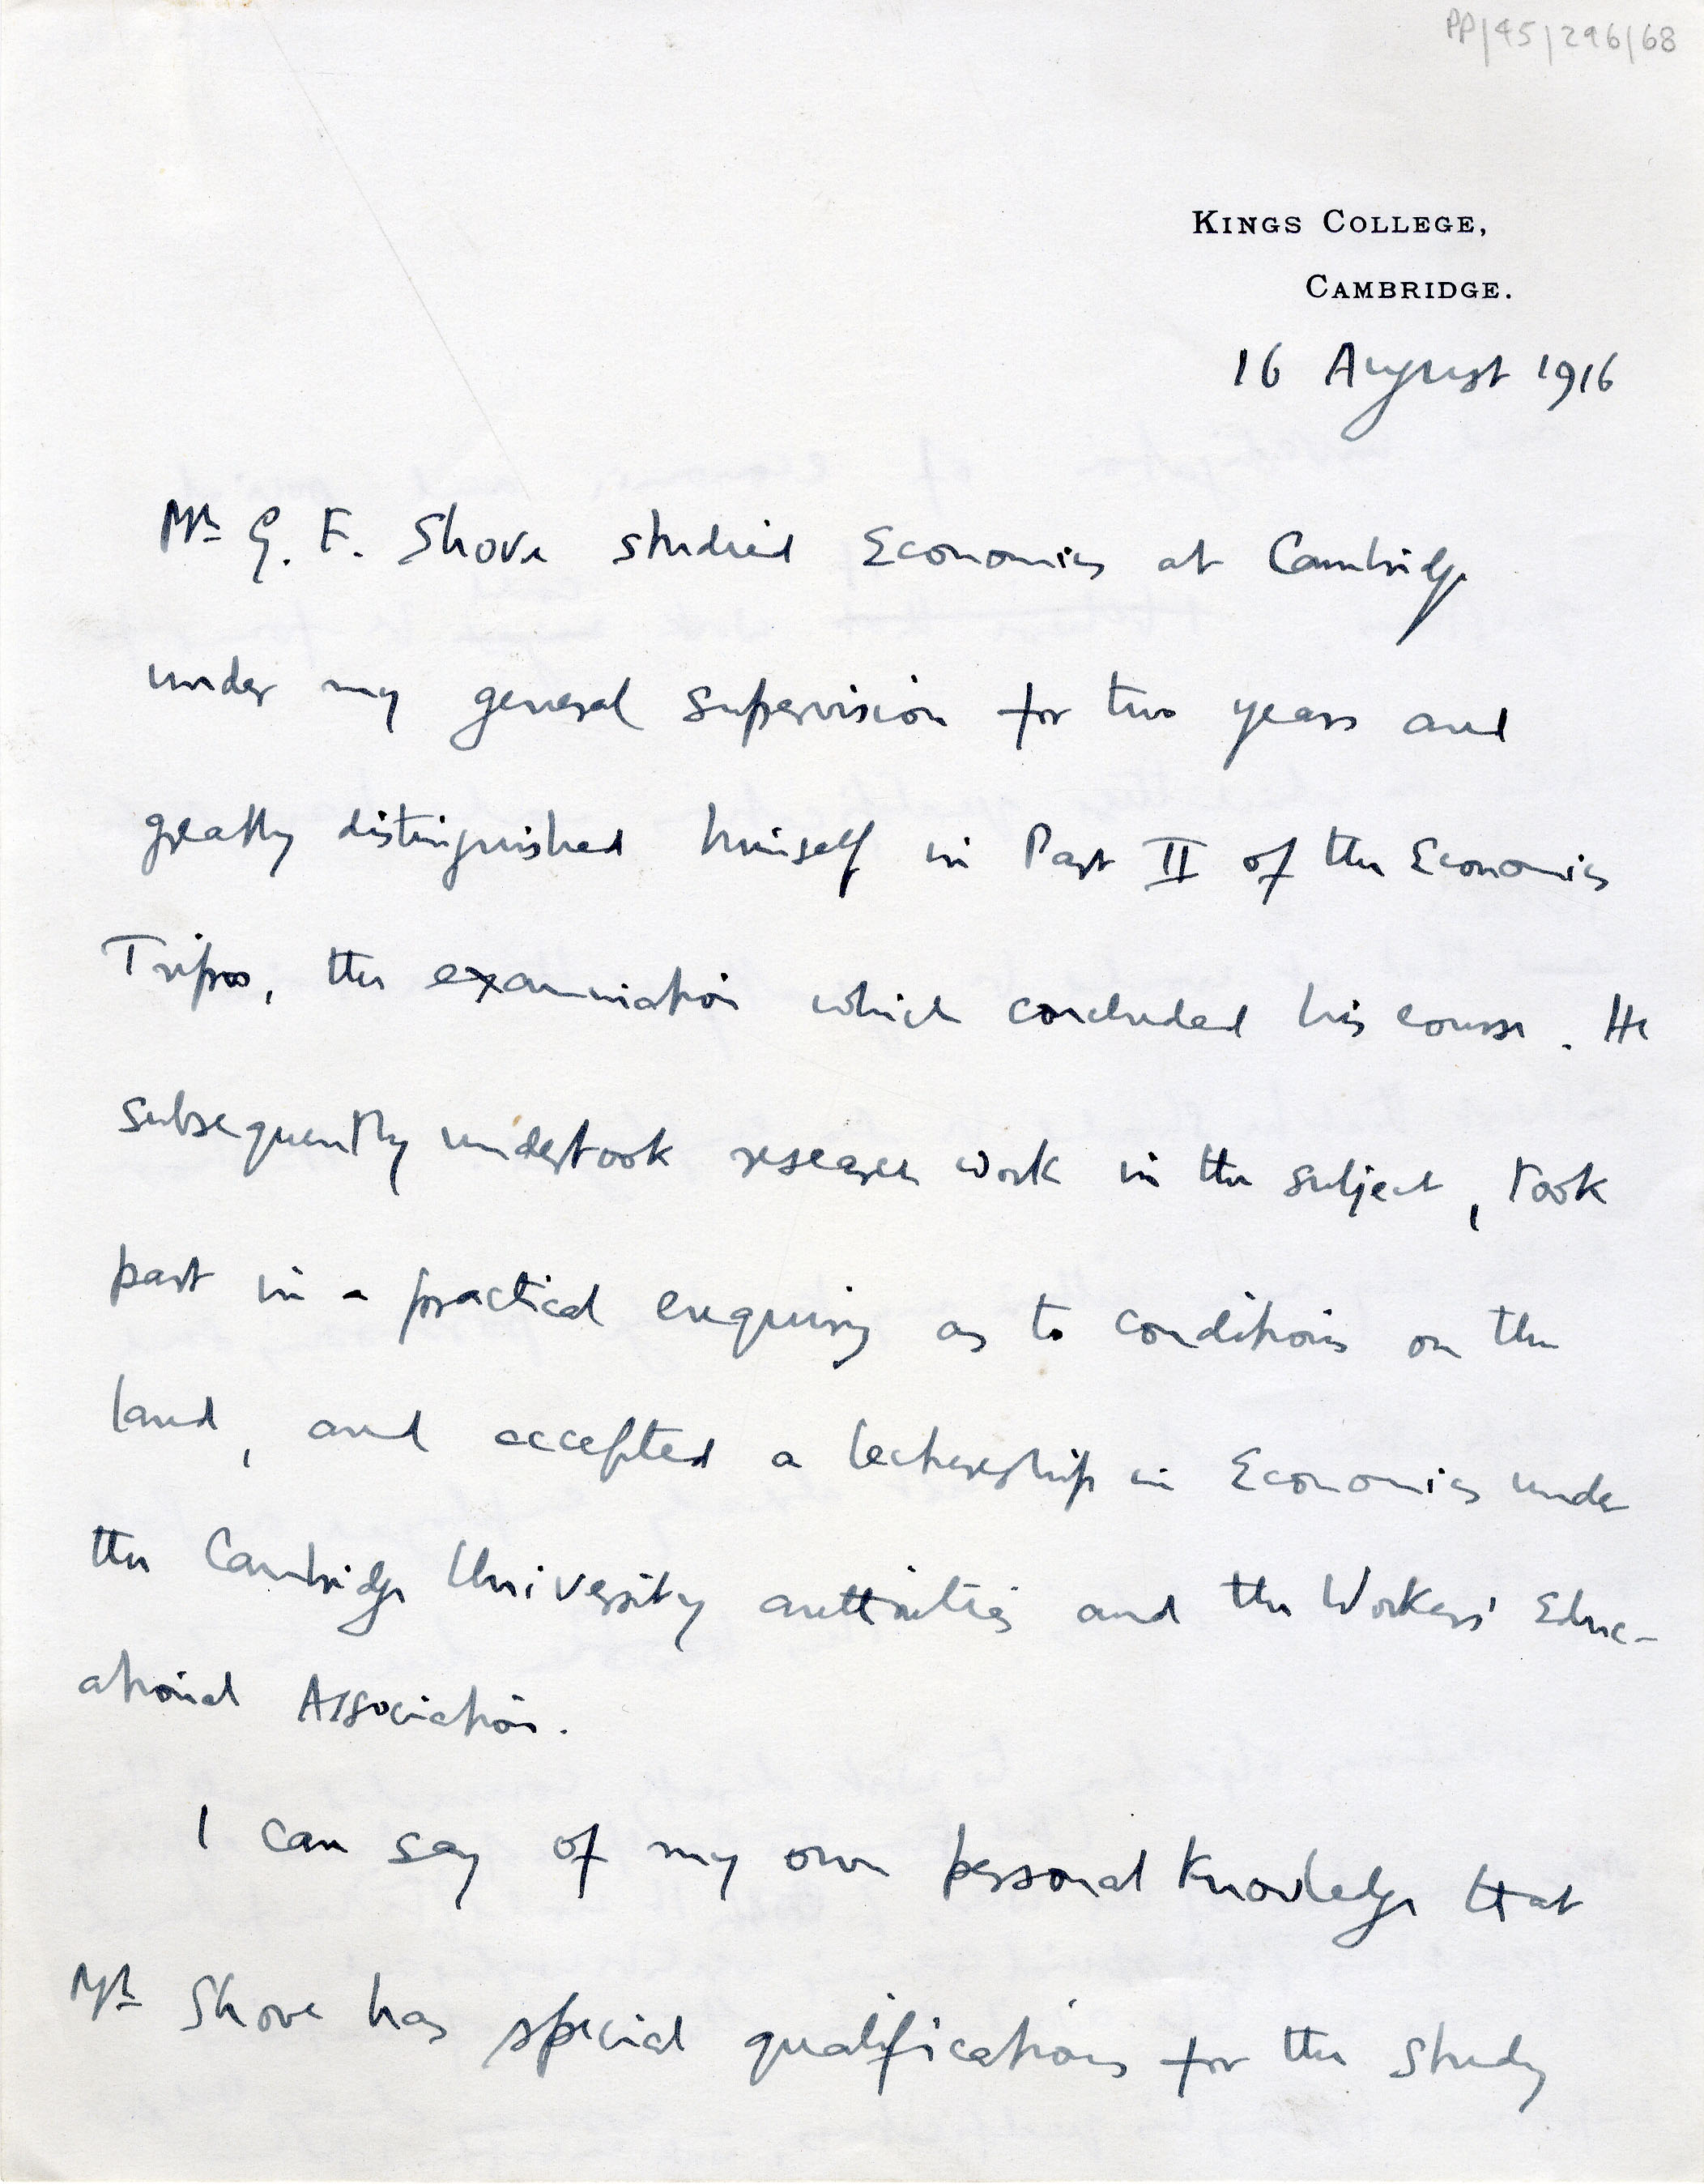 PP/45/296/68
KINGS COLLEGE,
CAMBRIDGE.
16 August 1916
Mr G. F. Shove studied Economics at Cambridge
under my general supervision for two years and
greatly distinguished himself in Part II of the Economics
Tripos, the examination which concluded his course. He
subsequently undertook research work in the subject, took
part in a practical enquiry as to conditions on the
land, and accepted a lectureship in Economics under
the Cambridge University authorities and the Workers' Educ-
ational Association.
I can say of my own personal knowledge that
Mr Shove has special qualifications for the study